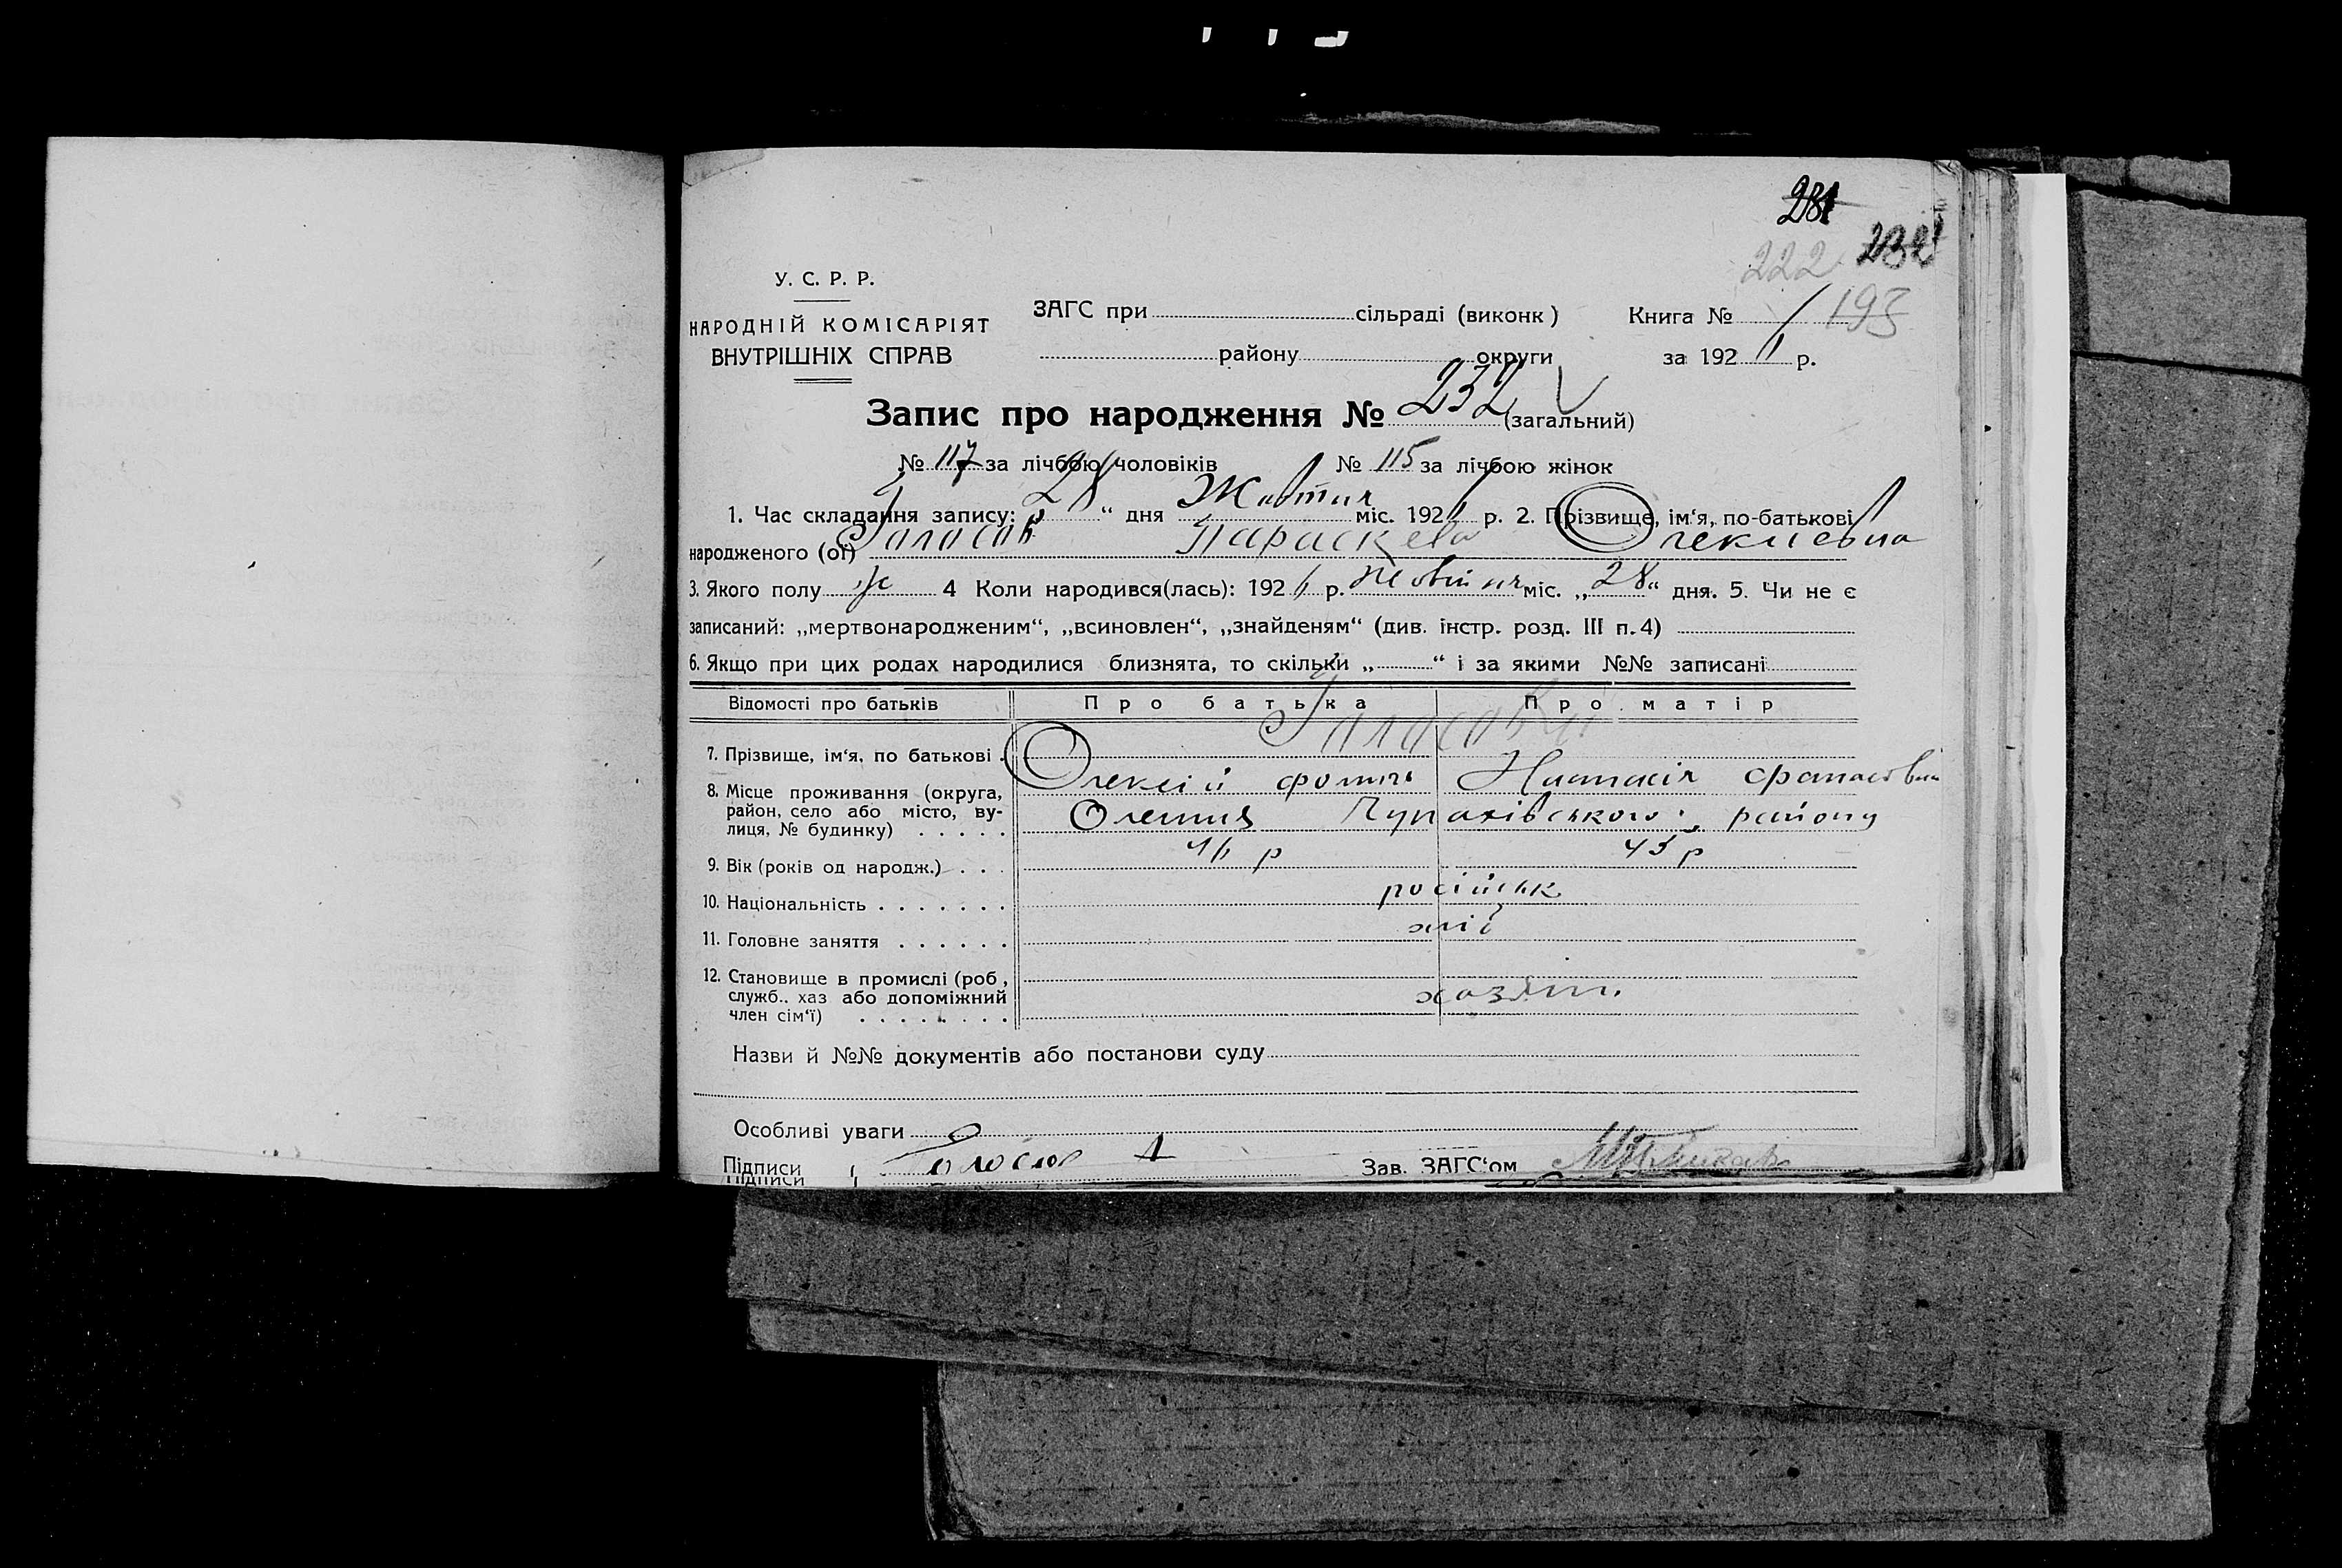 281
222 232
У. С. Р. Р.
НАРОДНІЙ КОМІСАРІЯТ
ВНУТРІШНІХ СПРАВ
ЗАГС при сільраді (виконк)
району округи
Книга № 1 193
за 192 р.
Запис про народження № 232 (загальний)
№ 117 за лічбою чоловіків № 115 за лічбою жінок
1. Час складання запису: 28 “ дня Жовтня міс. 192 р. 2. Прізвище, ім‘я, по-батькові
народженого (ої) Параскева Олексиевна
3. Якого полу ж 4 Коли народився(лась): 192 р. Жовтня міс. „ 28 “ дня. 5. Чи не є
записаний: „мертвонародженим“, „всиновлен“, „знайденям“ (див. інстр. розд. III п. 4)
6. Якщо при цих родах народилися близнята, то скільки „ “ і за якими №№ записані
Відомості про батьків Про батька Про матір
7. Прізвище, ім‘я, по батькові .
Олексій Настасія
8. Місце проживання (округа,
район, село або місто, ву-
лиця, № будинку) . . . . .
району
9. Вік (років од народж.) . . . р 45 р
10. Національність . . . . . . . російськ
11. Головне заняття . . . . . . хліб
12. Становище в промислі (роб,
служб.. хаз або допоміжний
член сім‘ї) . . . . . . . .
хазяїн
Назви й №№ документів або постанови суду
Особливі уваги
Підписи Зав. ЗАГС‘ом
Підписи